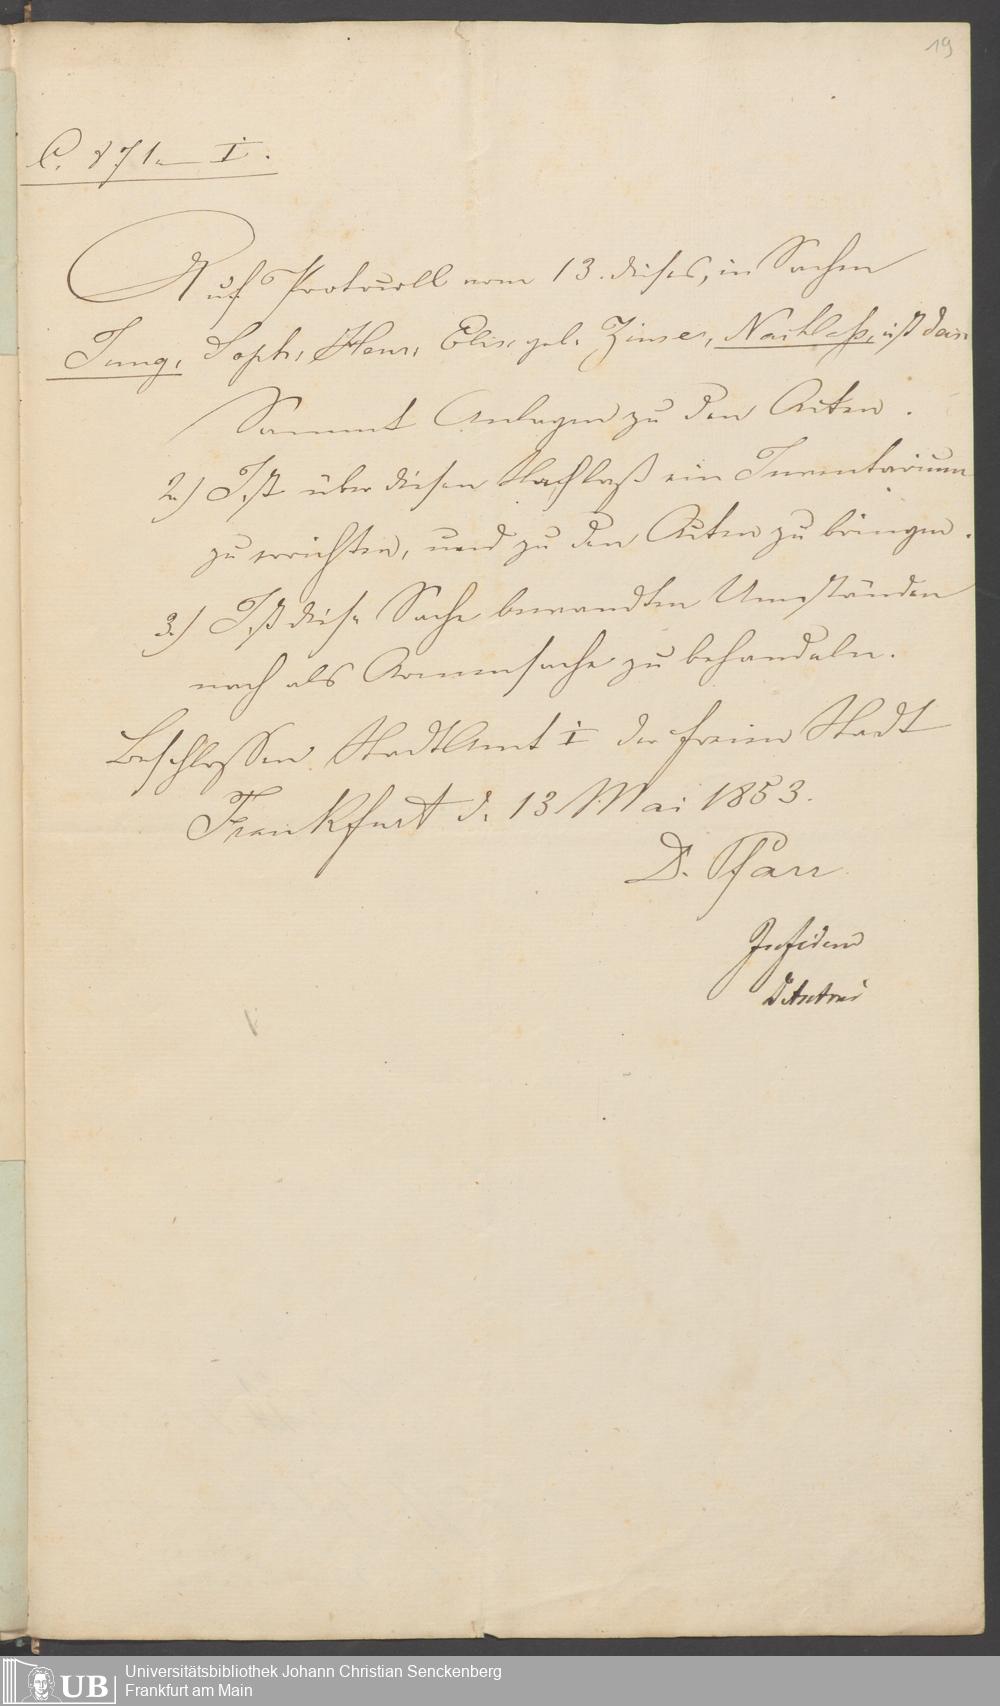 19
C. 871. I.
Auf Protocoll vom 13. dieses, in Sachen
Jung, Soph. Henr. Elis. geb. Zinse, Nachlaß, ist dass
Sammt Anlagen zu den Acten.
2.) Ist über diesen Nachlaß ein Inventarium
zu errichten, und zu den Acten zu bringen.
3.) Ist diese Sache bewandten Umständen
nach als Armensache zu behandeln.
Beschlossen Stadt Amt I der freien Stadt
Frankfurt d. 13 Mai 1853.
D. Pfarr
In fidem
Universitätsbibliothek Johann Christian Senckenberg
Frankfurt am Main
UB